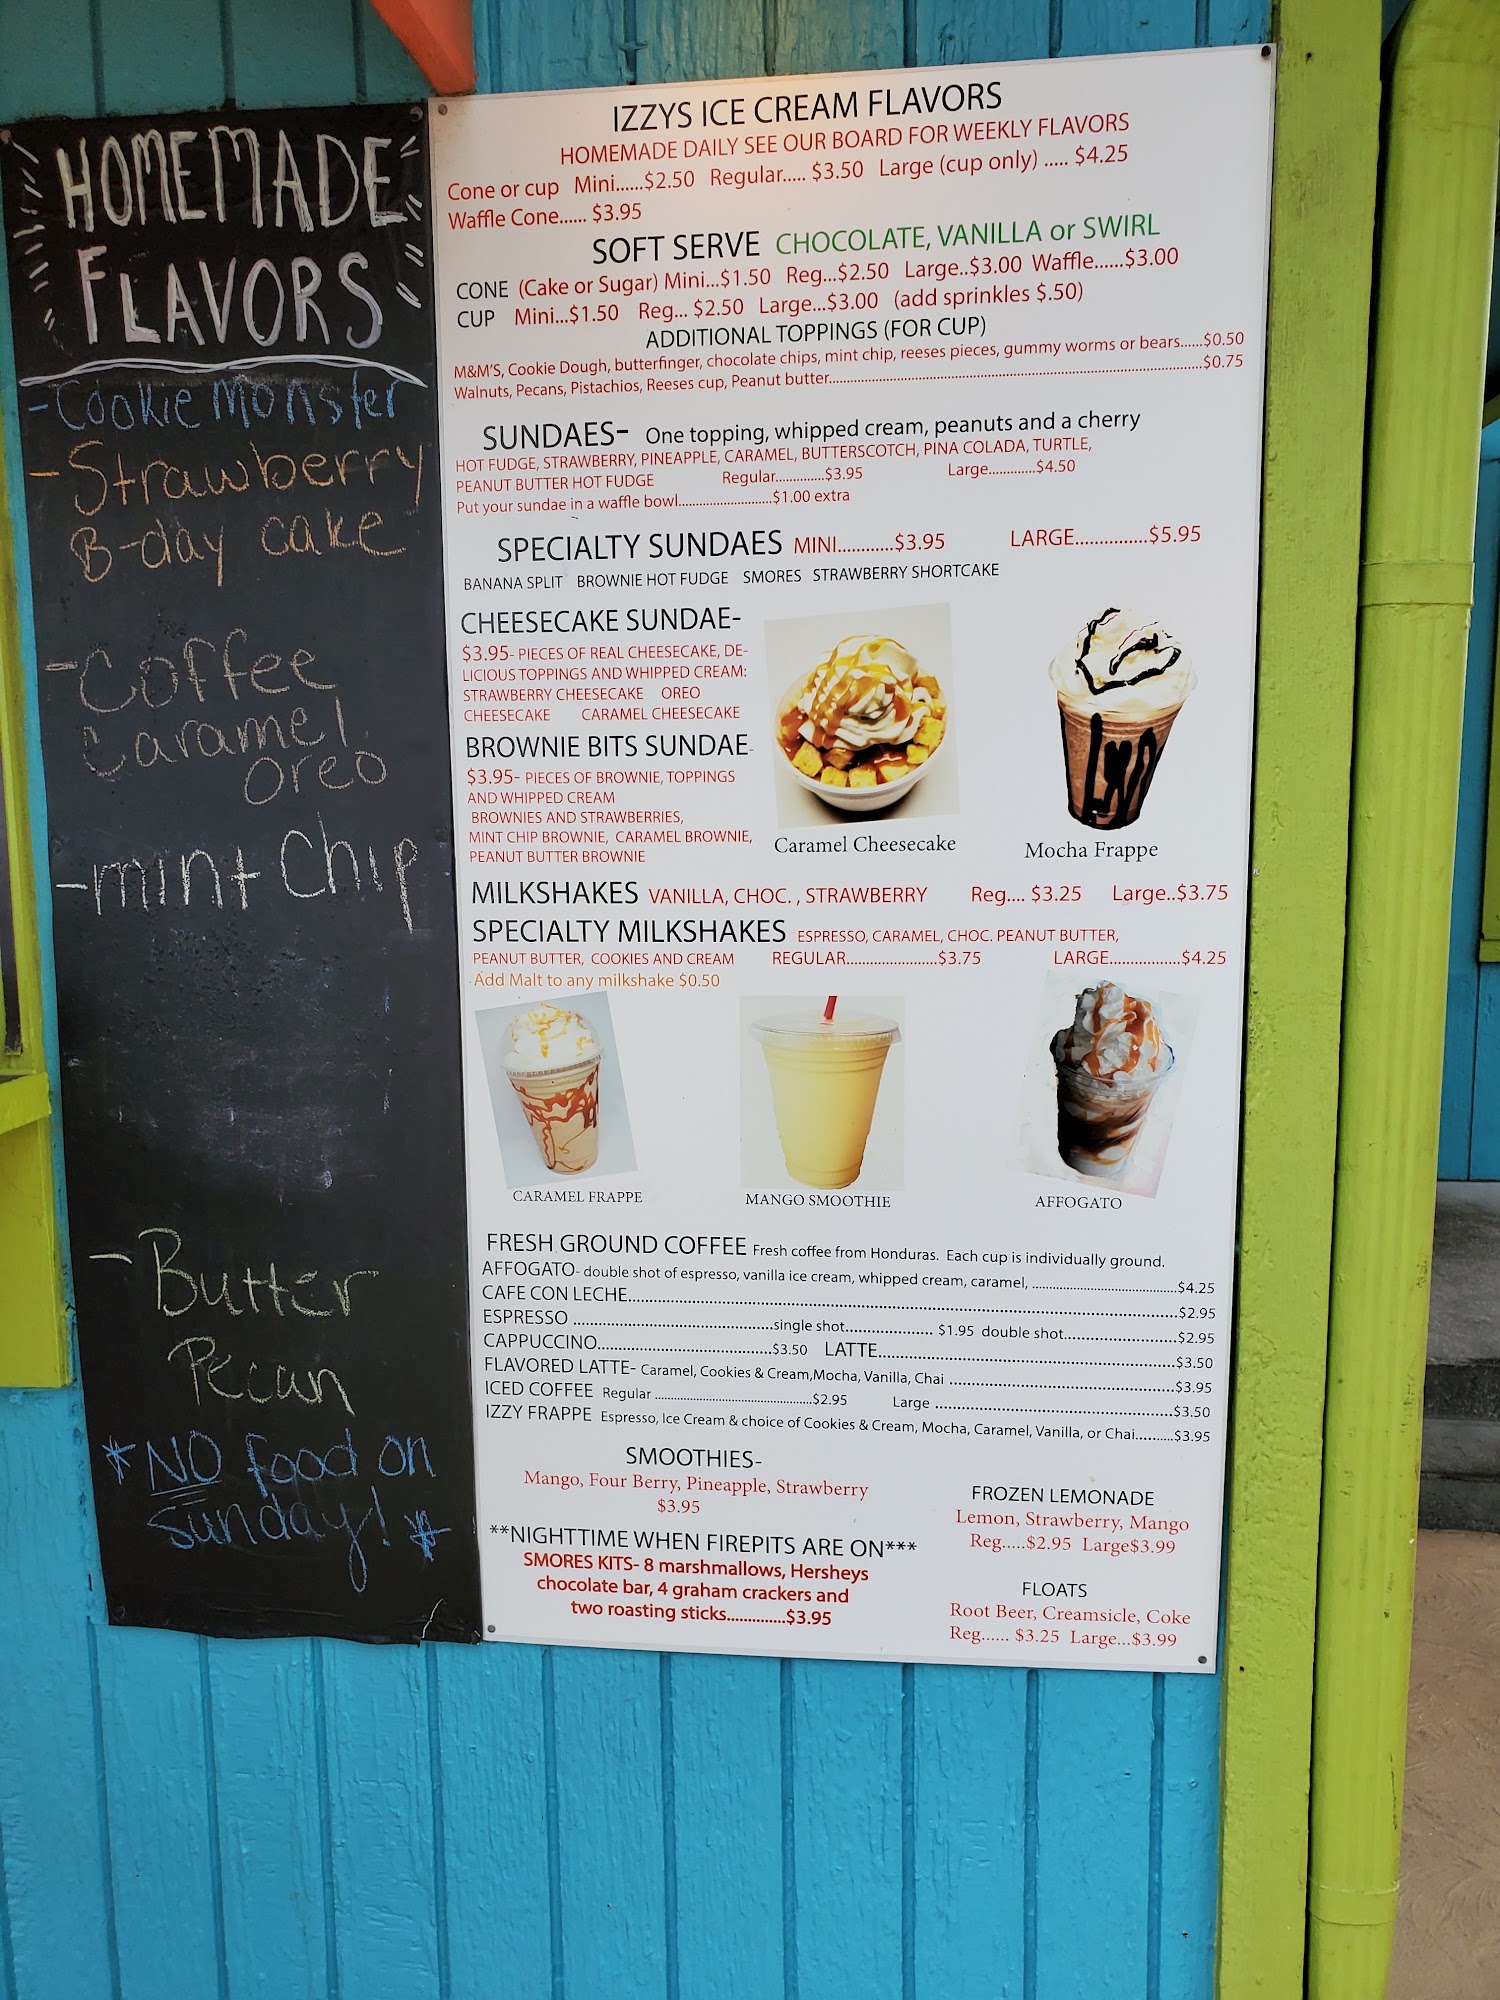 HOMEMADE
FLAVORS
-Cookie monster
-Strawberry
B-day cake
-Coffee
Caramel
Oreo
-mint Chip
-Butter
Pecan
*NO food on
sunday!*
IZZYS ICE CREAM FLAVORS
HOMEMADE DAILY SEE OUR BOARD FOR WEEKLY FLAVORS
Cone or cup Mini......$2.50 Regular..... $3.50 Large (cup only) ..... $4.25
Waffle Cone...... $3.95
SOFT SERVE CHOCOLATE, VANILLA or SWIRL
CONE (Cake or Sugar) Mini...$1.50 Reg...$2.50 Large..$3.00 Waffle......$3.00
CUP Mini...$1.50 Reg... $2.50 Large...$3.00 (add sprinkles $.50)
ADDITIONAL TOPPINGS (FOR CUP)
M&M'S, Cookie Dough, butterfinger, chocolate chips, mint chip, reeses pieces, gummy worms or bears......$0.50
Walnuts, Pecans, Pistachios, Reeses cup, Peanut butter..........$0.75
SUNDAES- One topping, whipped cream, peanuts and a cherry
HOT FUDGE, STRAWBERRY, PINEAPPLE, CARAMEL, BUTTERSCOTCH, PINA COLADA, TURTLE,
PEANUT BUTTER HOT FUDGE Regular..............$3.95 Large.............$4.50
Put your sundae in a waffle bowl..........................$1.00 extra
SPECIALTY SUNDAES MINI............$3.95 LARGE...............$5.95
BANANA SPLIT BROWNIE HOT FUDGE SMORES STRAWBERRY SHORTCAKE
CHEESECAKE SUNDAE-
$3.95- PIECES OF REAL CHEESECAKE, DE-
LICIOUS TOPPINGS AND WHIPPED CREAM:
STRAWBERRY CHEESECAKE OREO
CHEESECAKE CARAMEL CHEESECAKE
BROWNIE BITS SUNDAE-
$3.95- PIECES OF BROWNIE, TOPPINGS
AND WHIPPED CREAM
BROWNIES AND STRAWBERRIES,
MINT CHIP BROWNIE, CARAMEL BROWNIE,
PEANUT BUTTER BROWNIE
Caramel Cheesecake
Mocha Frappe
MILKSHAKES VANILLA, CHOC. , STRAWBERRY Reg.... $3.25 Large..$3.75
SPECIALTY MILKSHAKES ESPRESSO, CARAMEL, CHOC. PEANUT BUTTER,
PEANUT BUTTER, COOKIES AND CREAM REGULAR.......................$3.75 LARGE.................$4.25
Add Malt to any milkshake $0.50
CARAMEL FRAPPE
MANGO SMOOTHIE
AFFOGATO
FRESH GROUND COFFEE Fresh coffee from Honduras. Each cup is individually ground.
AFFOGATO- double shot of espresso, vanilla ice cream, whipped cream, caramel, ..........$4.25
CAFE CON LECHE..........$2.95
ESPRESSO ..........single shot..................... $1.95 double shot..........$2.95
CAPPUCCINO..........$3.50 LATTE..........$3.50
FLAVORED LATTE- Caramel, Cookies & Cream,Mocha, Vanilla, Chai ..........$3.95
ICED COFFEE Regular ..........$2.95 Large ..........$3.50
IZZY FRAPPE Espresso, Ice Cream & choice of Cookies & Cream, Mocha, Caramel, Vanilla, or Chai..........$3.95
SMOOTHIES-
Mango, Four Berry, Pineapple, Strawberry
$3.95
**NIGHTTIME WHEN FIREPITS ARE ON***
SMORES KITS- 8 marshmallows, Hersheys
chocolate bar, 4 graham crackers and
two roasting sticks..............$3.95
FROZEN LEMONADE
Lemon, Strawberry, Mango
Reg.....$2.95 Large$3.99
FLOATS
Root Beer, Creamsicle, Coke
Reg...... $3.25 Large...$3.99